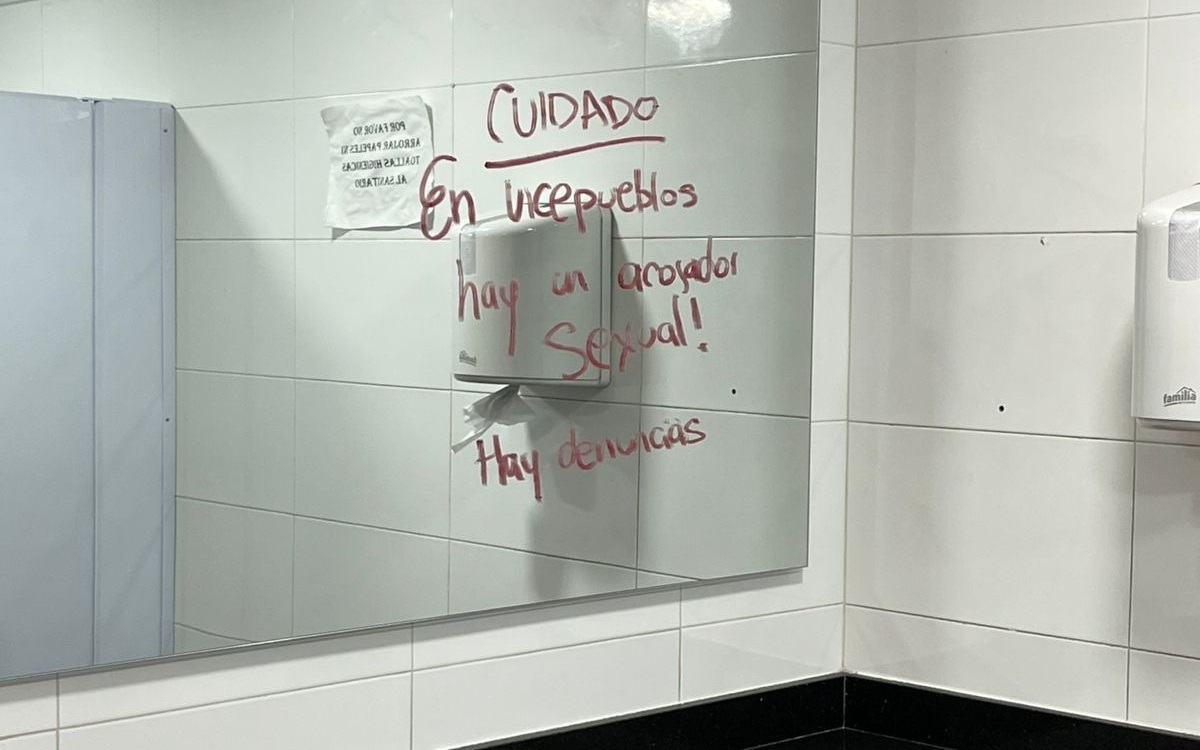 CUIDADO
En vicepueblos
hay un acosador
sexual!
Hay denuncias
POR FAVOR NO
ARROJAR PAPELES NI
TOALLAS HIGIENICAS
AL SANITARIO
familia
familia